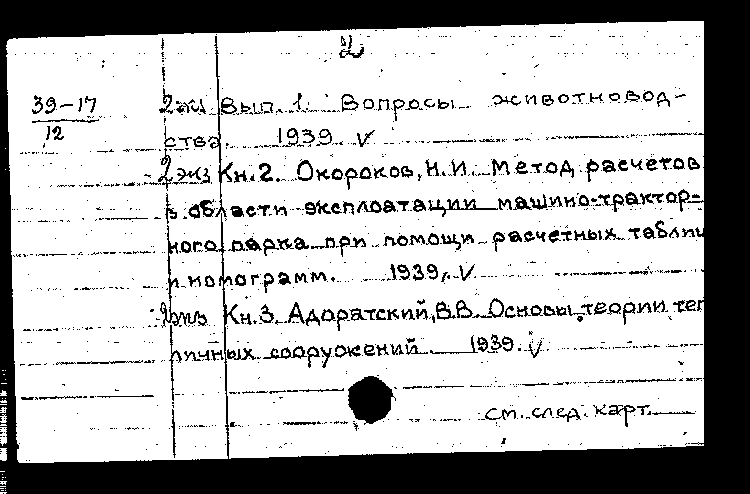 2
39-17
12
2экз Вып. 1. Вопросы животновод-
ства. 1939 V
2экз Кн.2. Окороков, Н.И. Метод расчетов
в области эксплоатации машино-трактор-
ного парка при помощи расчетных таблиц
и номограмм. 1939, V
2экз Кн.3. Адоратский, В.В. Основы теории теп
личных сооружений. 1939. V
см. след. карт.